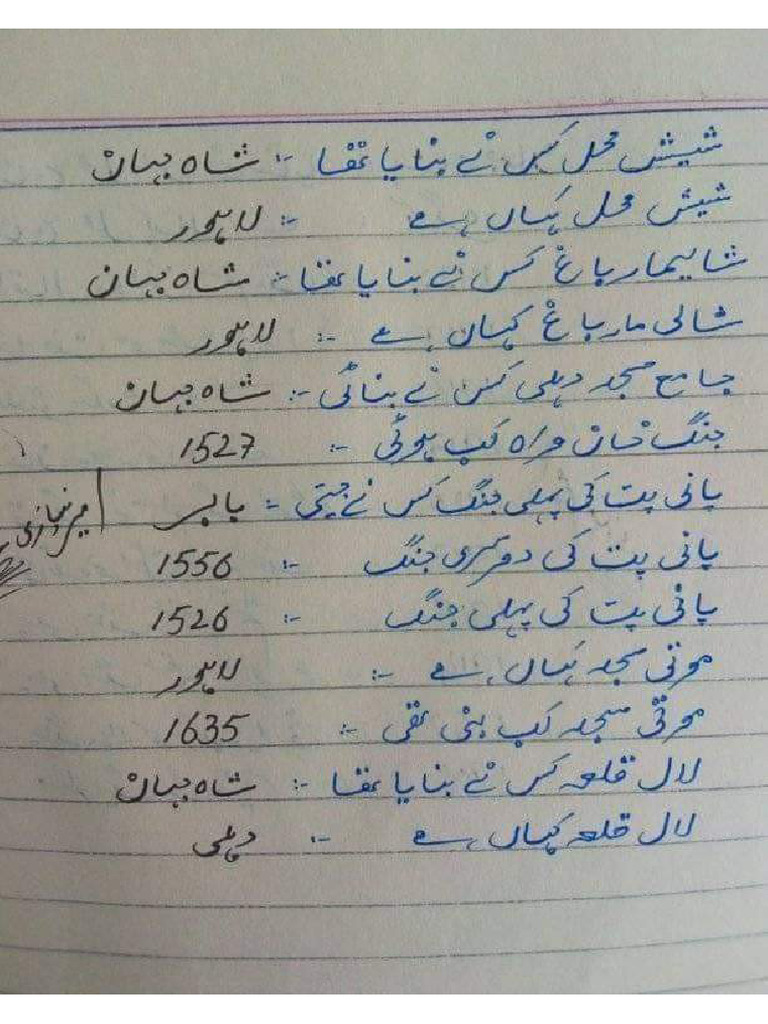 شیش محل کس نے بنایا تھا :- شاہ جہان
شیش محل کہاں ہے :- لاہور
شالیمار باغ کس نے بنایا تھا :- شاہ جہان
شالی مار باغ کہاں ہے :- لاہور
جامع مسجد دہلی کس نے بنائی :- شاہ جہان
جنگ خان واہ کب ہوئی :- 1527
پانی پت کی پہلی جنگ کس نے جیتی :- بابر
پانی پت کی دوسری جنگ :- 1556
پانی پت کی پہلی جنگ :- 1526
موتی مسجد کہاں ہے :- لاہور
موتی مسجد کب بنی تھی :- 1635
لال قلعہ کس نے بنایا تھا :- شاہ جہان
لال قلعہ کہاں ہے :- دہلی